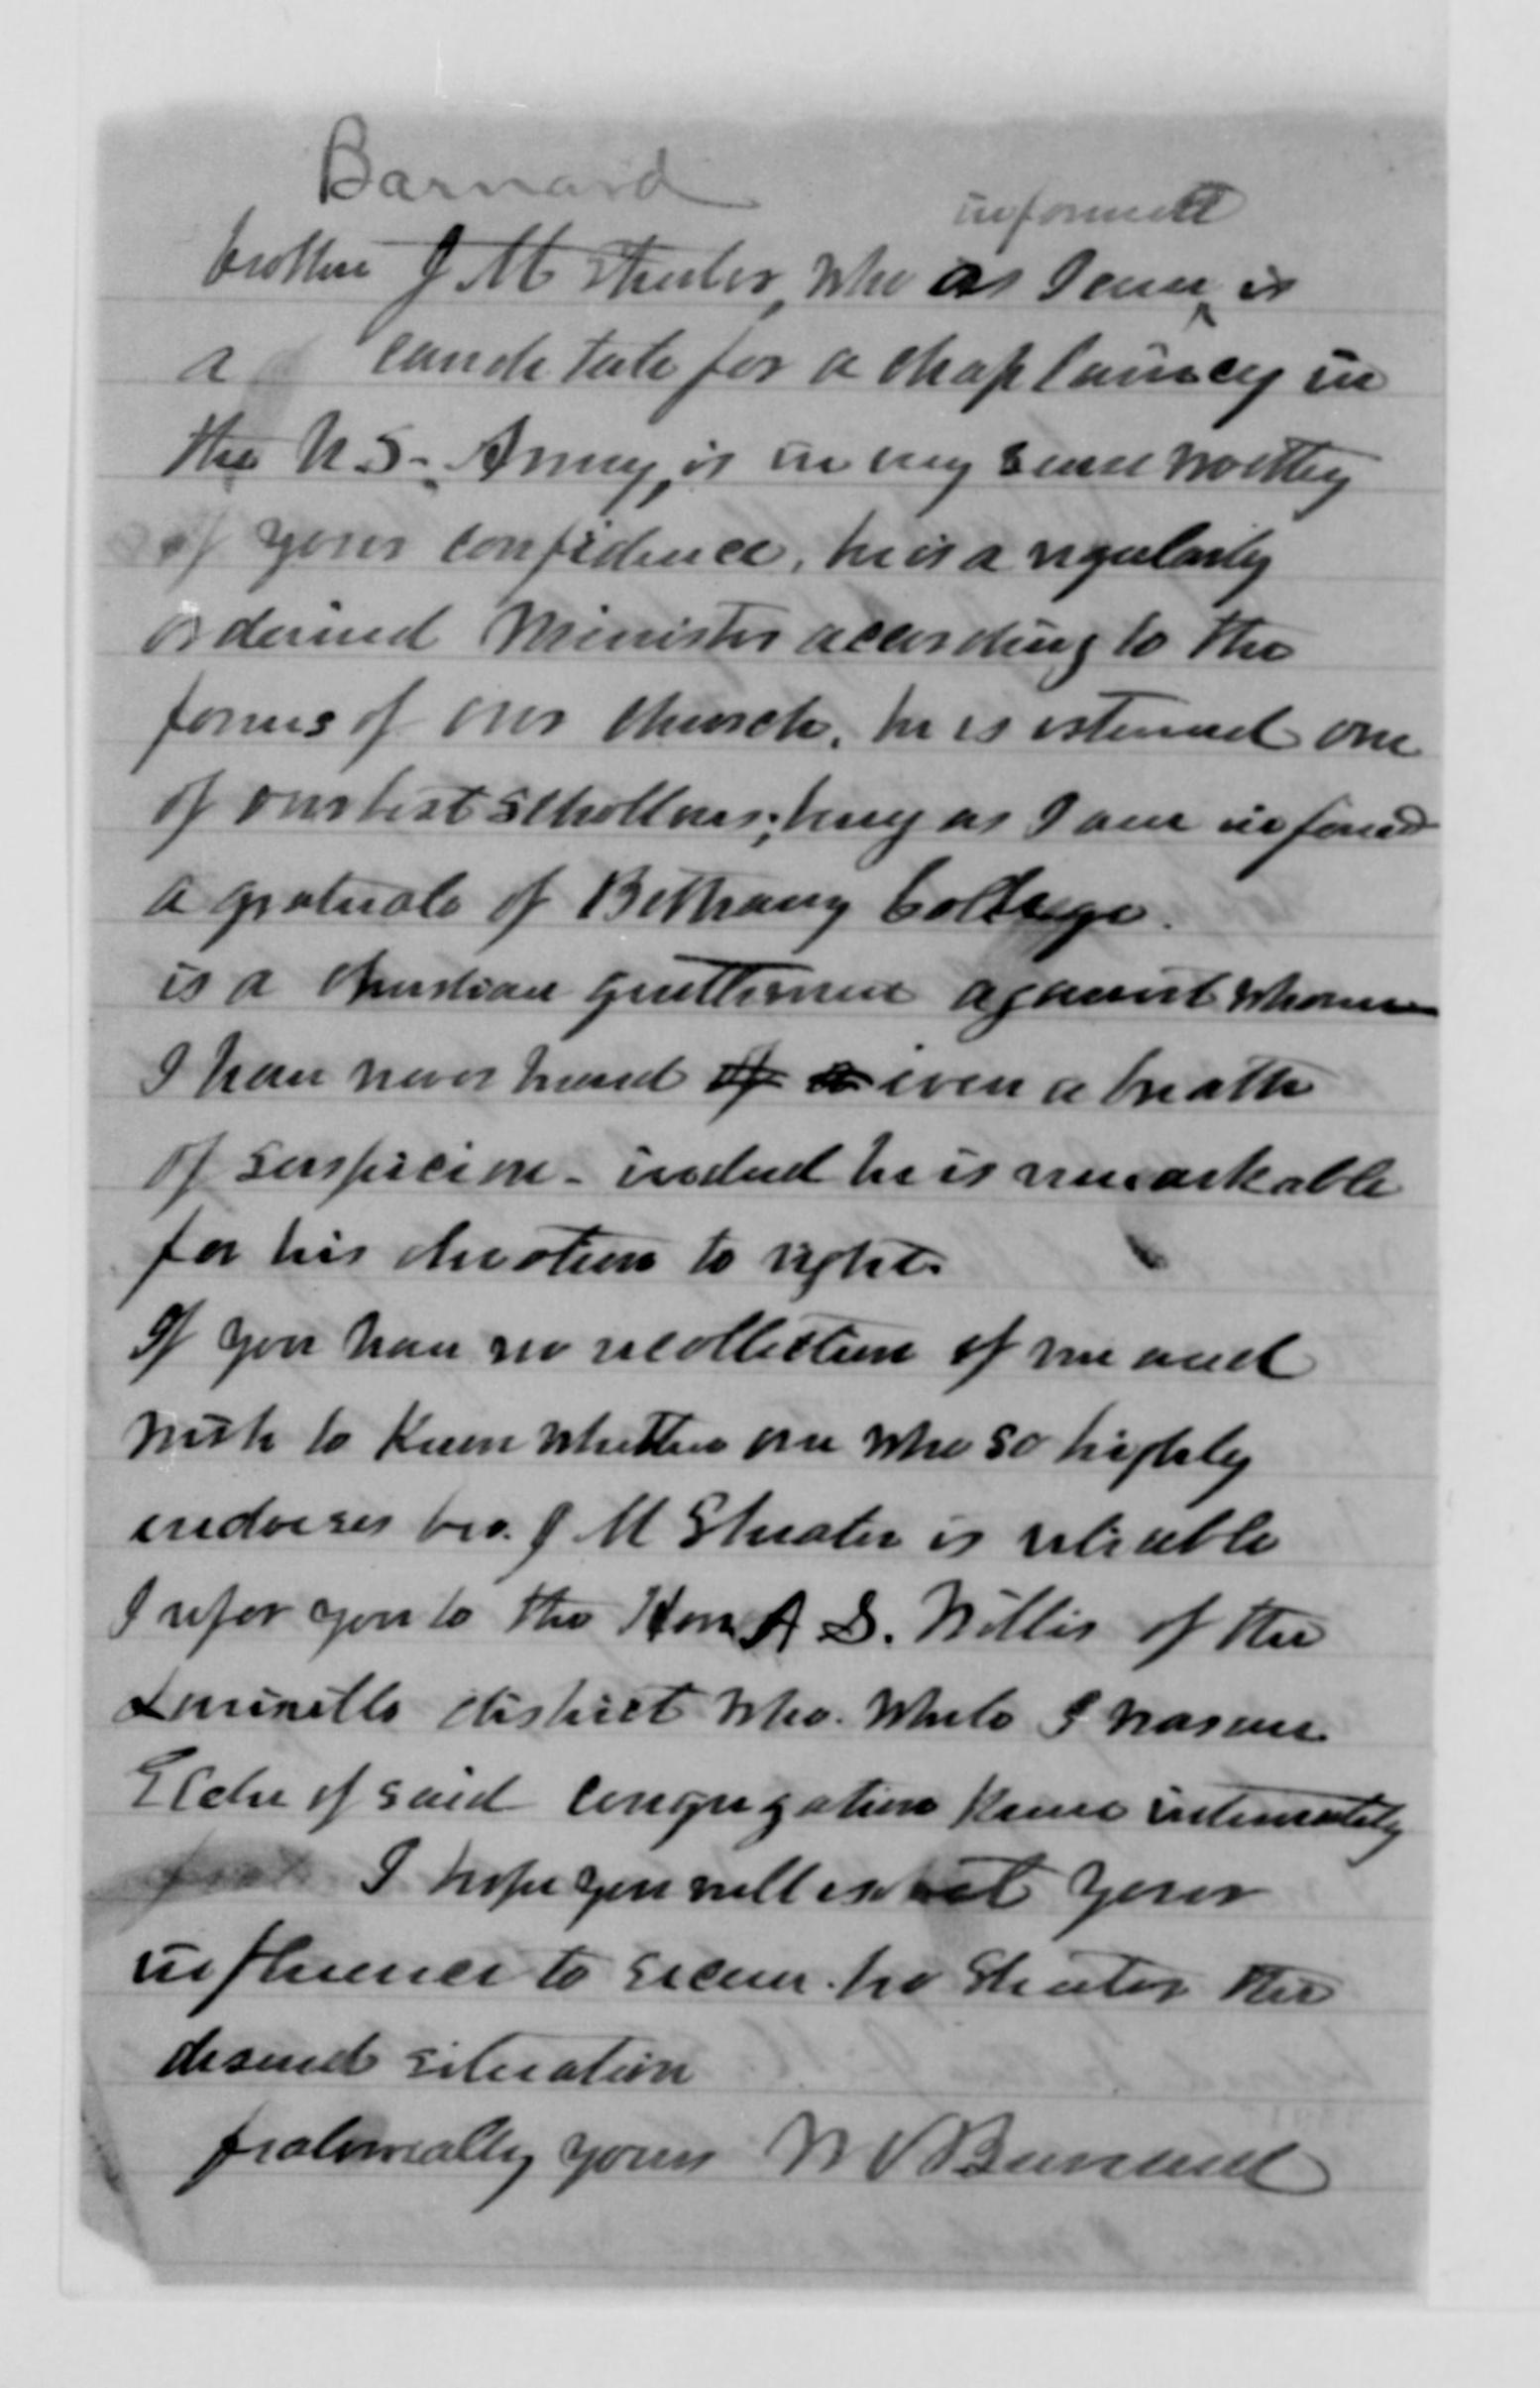 Barnard
informed
brother J M Streator, who as I am ^ is
a candidate for a chaplaincy in
the U.S. Army, is in my sense worthy
of your confidence, he is a regularly
ordained Minister according to the
forms of our church, he is esteemed one
of our best schollars; being as I am informed
a graduate of Bethany College.
is a christian gentleman against whom
I have never heard of a even a breath
of suspicion - indeed he is remarkable
for his devotion to right.
If you have no recollection of me and
wish to know whether one who so highly
endorses bro. J M Streator is reliable
I refer you to the Hon A S. Willis of the
Louisville district who. while I was an
Elder of said congregation knew intimately
I hope you will exhort your
influence to secure bro Streator the
desired situation
fraternally yours W V Barnard